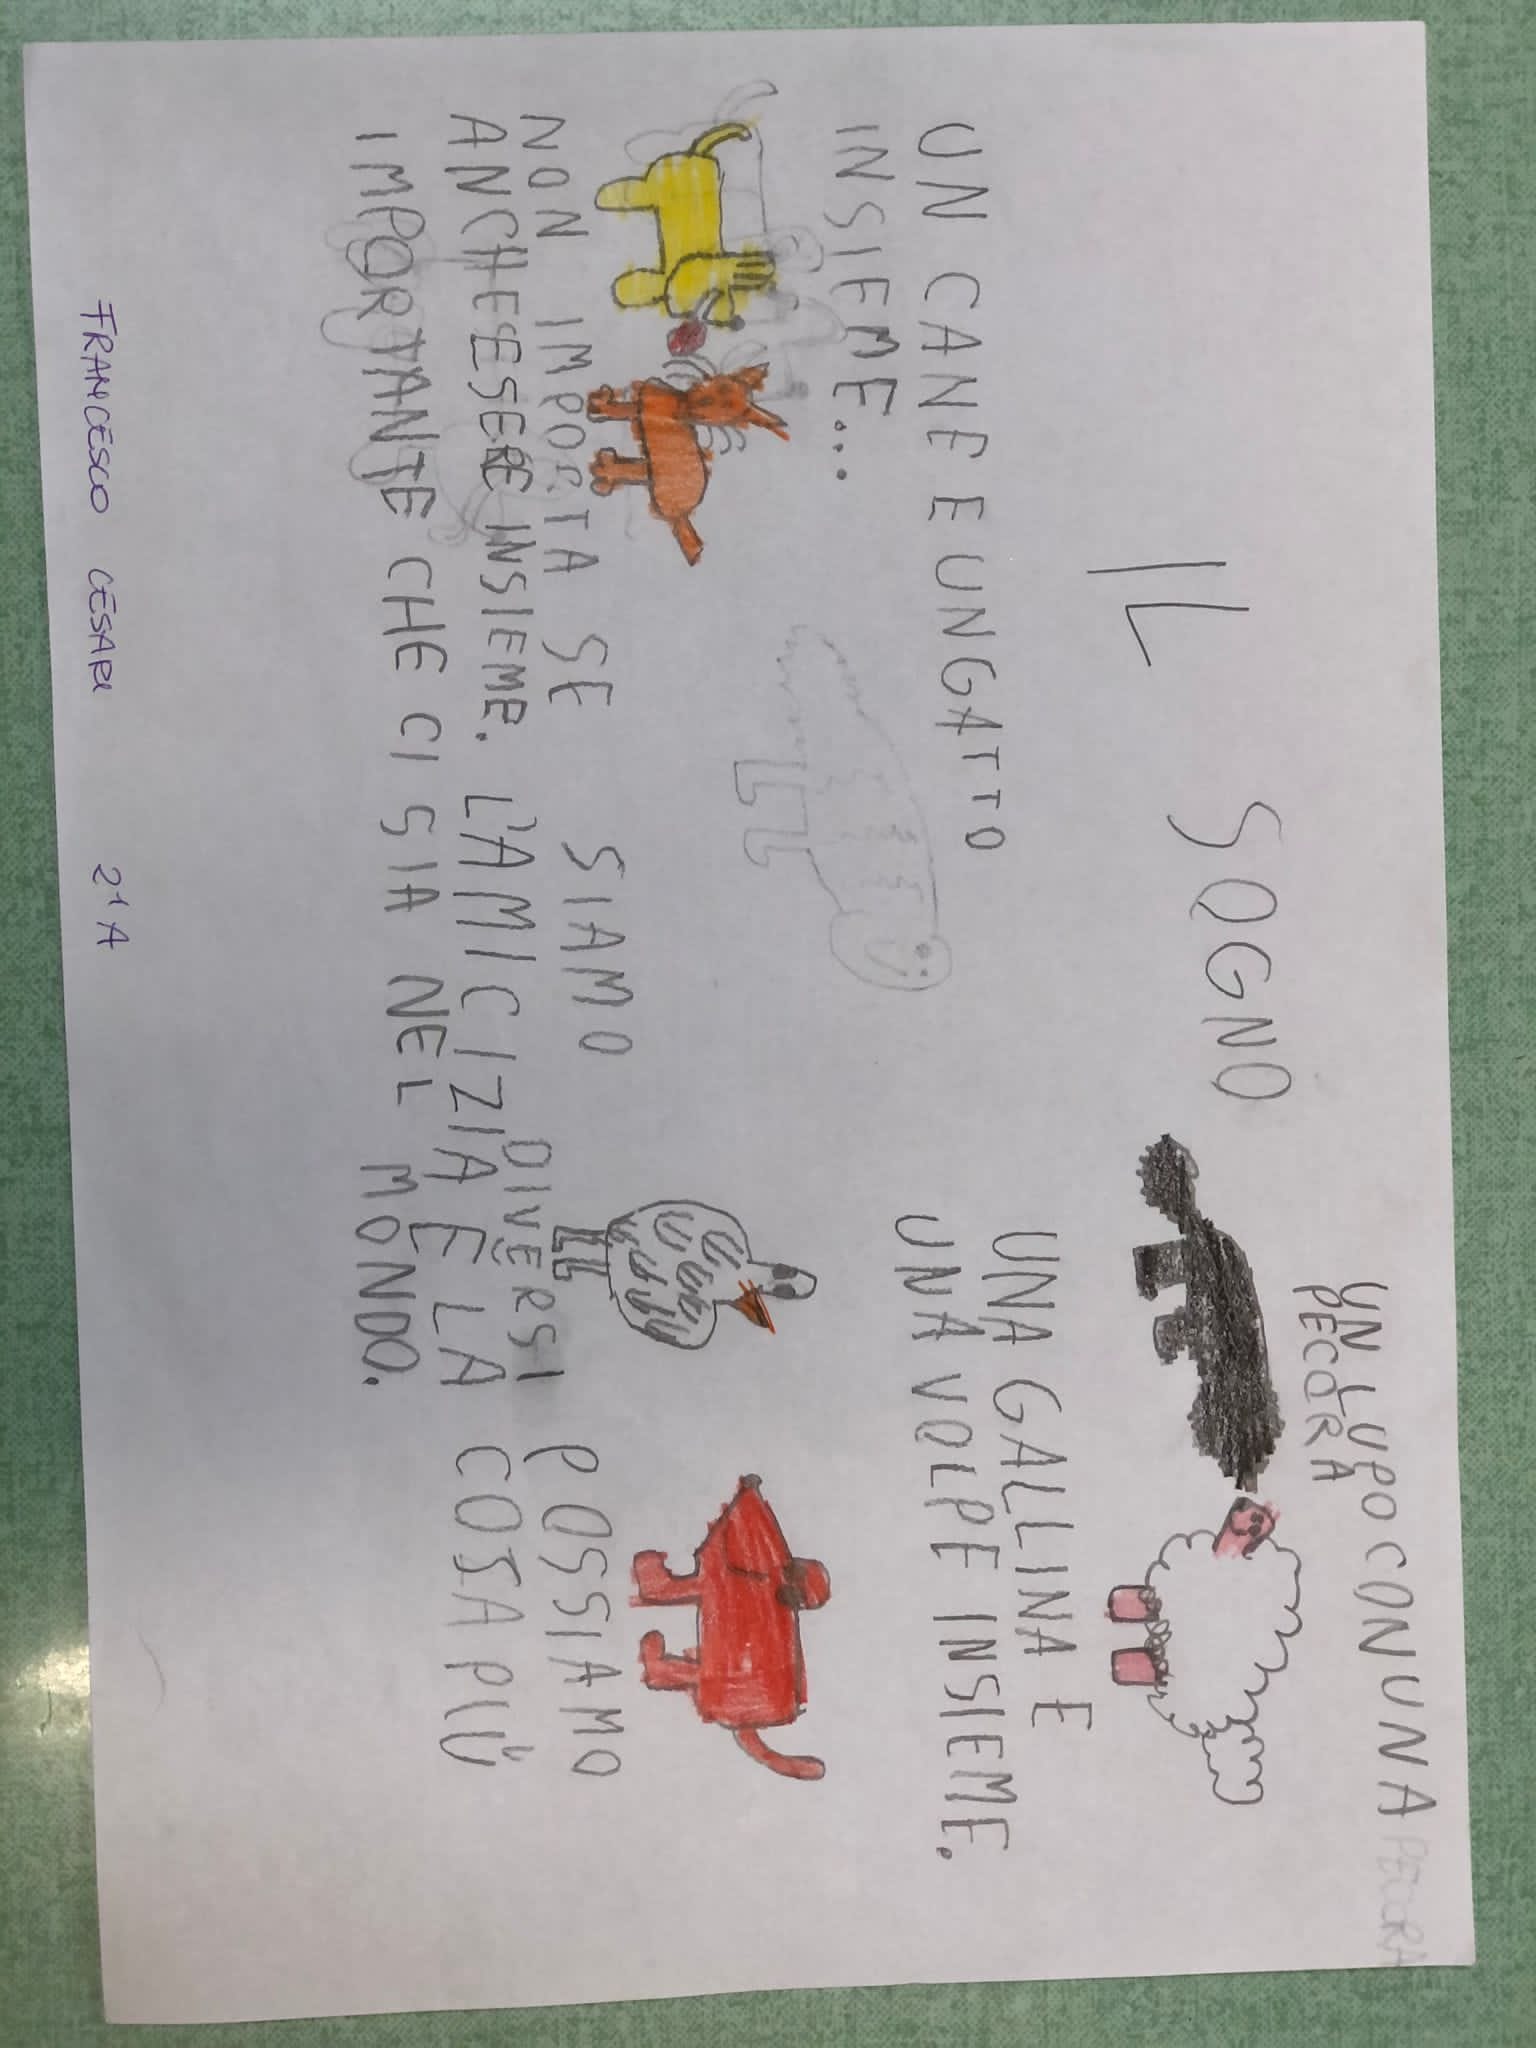 IL SOGNO
UN LUPO CON UNA
PECORA
PECORA
UN CANE E UN GATTO
INSIEME...
UNA GALLINA E
UNA VOLPE INSIEME.
NON IMPORTA SE SIAMO DIVERSI POSSIAMO
ANCHE ESSERE INSIEME. L'AMICIZIA È LA COSA PIÙ
IMPORTANTE CHE CI SIA NEL MONDO.
FRANCESCO CESARI 2ªA